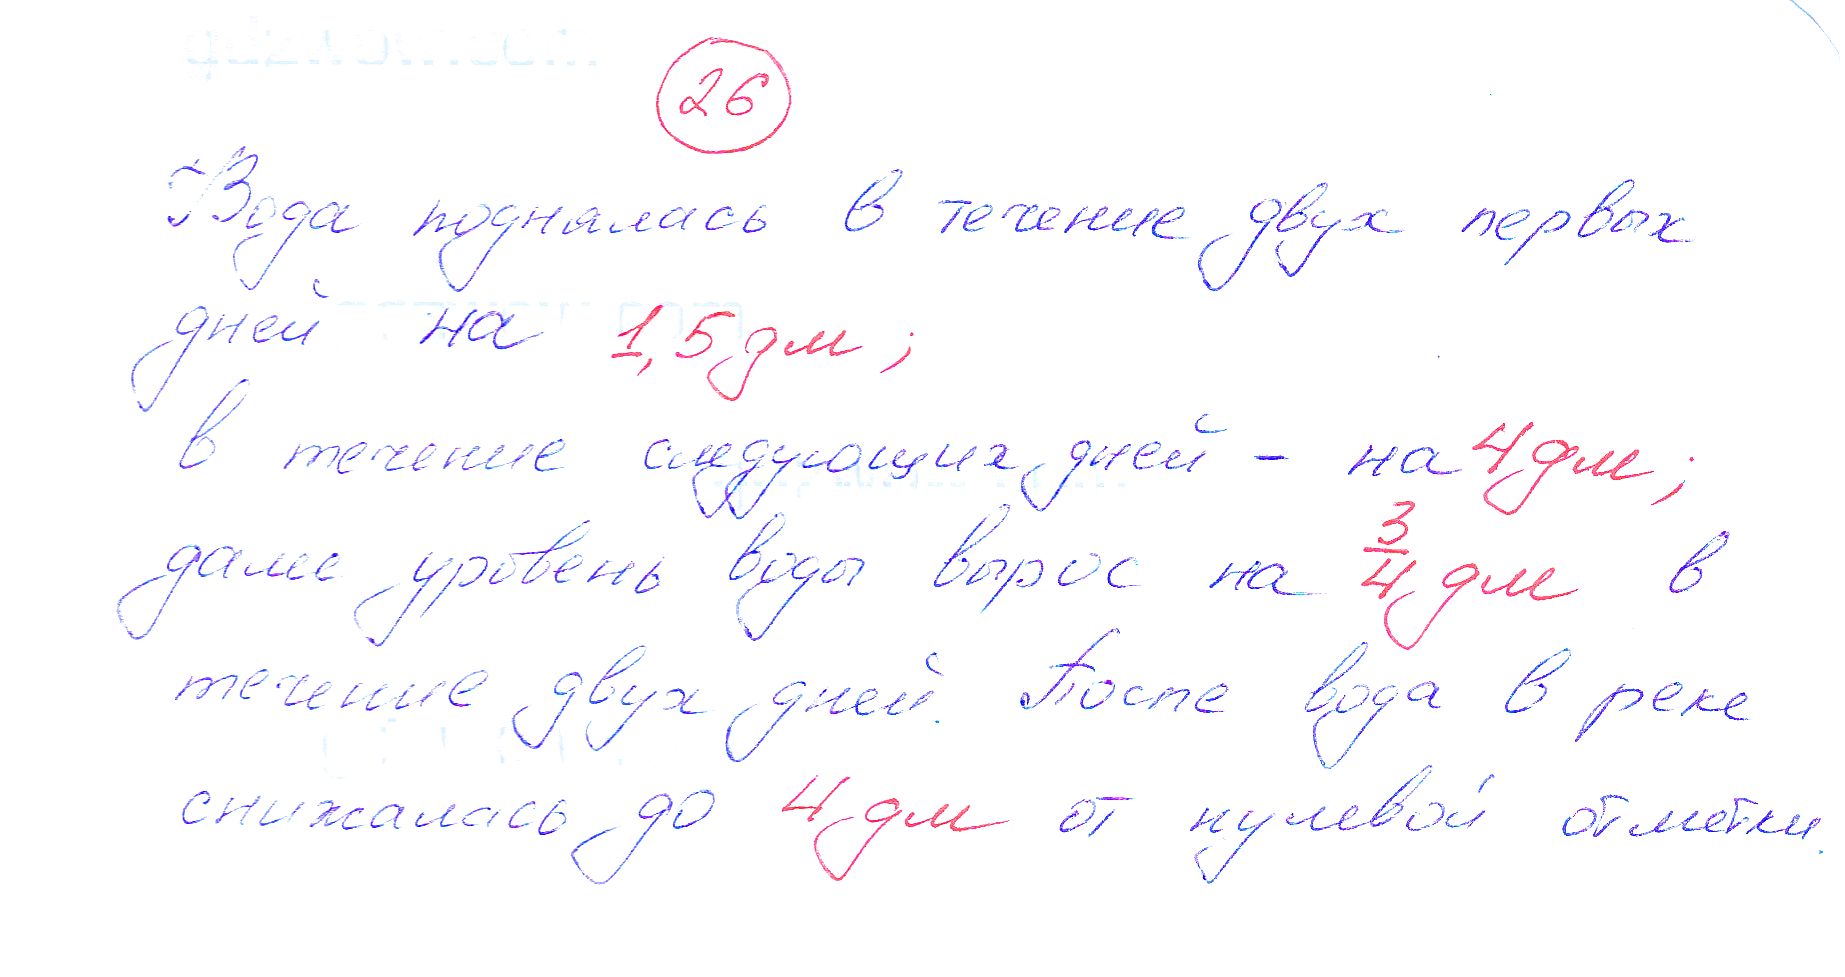 26
Вода поднялась в течение двух первых
дней на 1,5 дм;
в течение следующих дней - на 4 дм;
далее уровень воды вырос на 3/4 дм в
течение двух дней. После вода в реке
снижалась до 4 дм от нулевой отметки.